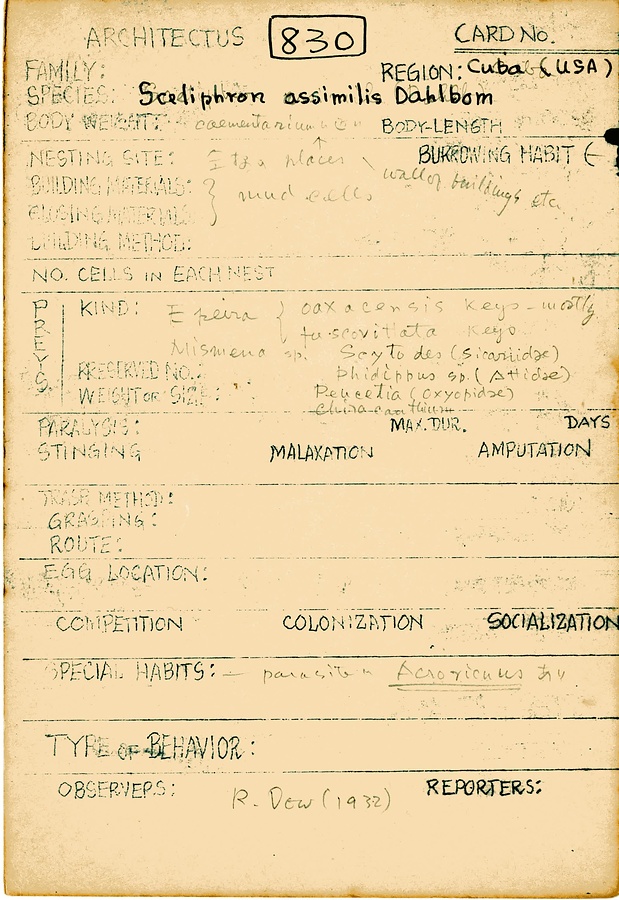 ARCHITECTUS 830 CARD No.
FAMILY: REGION: Cuba (USA)
SPECIES: Sceliphron assimilis Dahlbom
BODY WEIGHT: caementarium BODY-LENGTH
NESTING SITE: places BURROWING HABIT (-
wall of buildings etc.
BUILDING MATERIALS: } mud cells
CLOSING MATERIALS
BUILDING METHOD:
NO. CELLS IN EACH NEST
PREYS
KIND: Epeira { oaxacensis Keys - mostly
fuscovitata Keys
Mismena sp. Scytodes (Sicariidae)
PRESERVED NO.: Phidippus sp. (Attidae)
WEIGHT or SIZE: Peucetia (oxyopidae)
Chiracanthium
PARALYSIS: MAX. DUR. DAYS
STINGING MALAXATION AMPUTATION
TRASP METHOD:
GRASPING:
ROUTE:
EGG LOCATION:
COMPETITION COLONIZATION SOCIALIZATION
SPECIAL HABITS: - parasite
TYPE OF BEHAVIOR:
OBSERVERS: R. Dow (1932) REPORTERS: